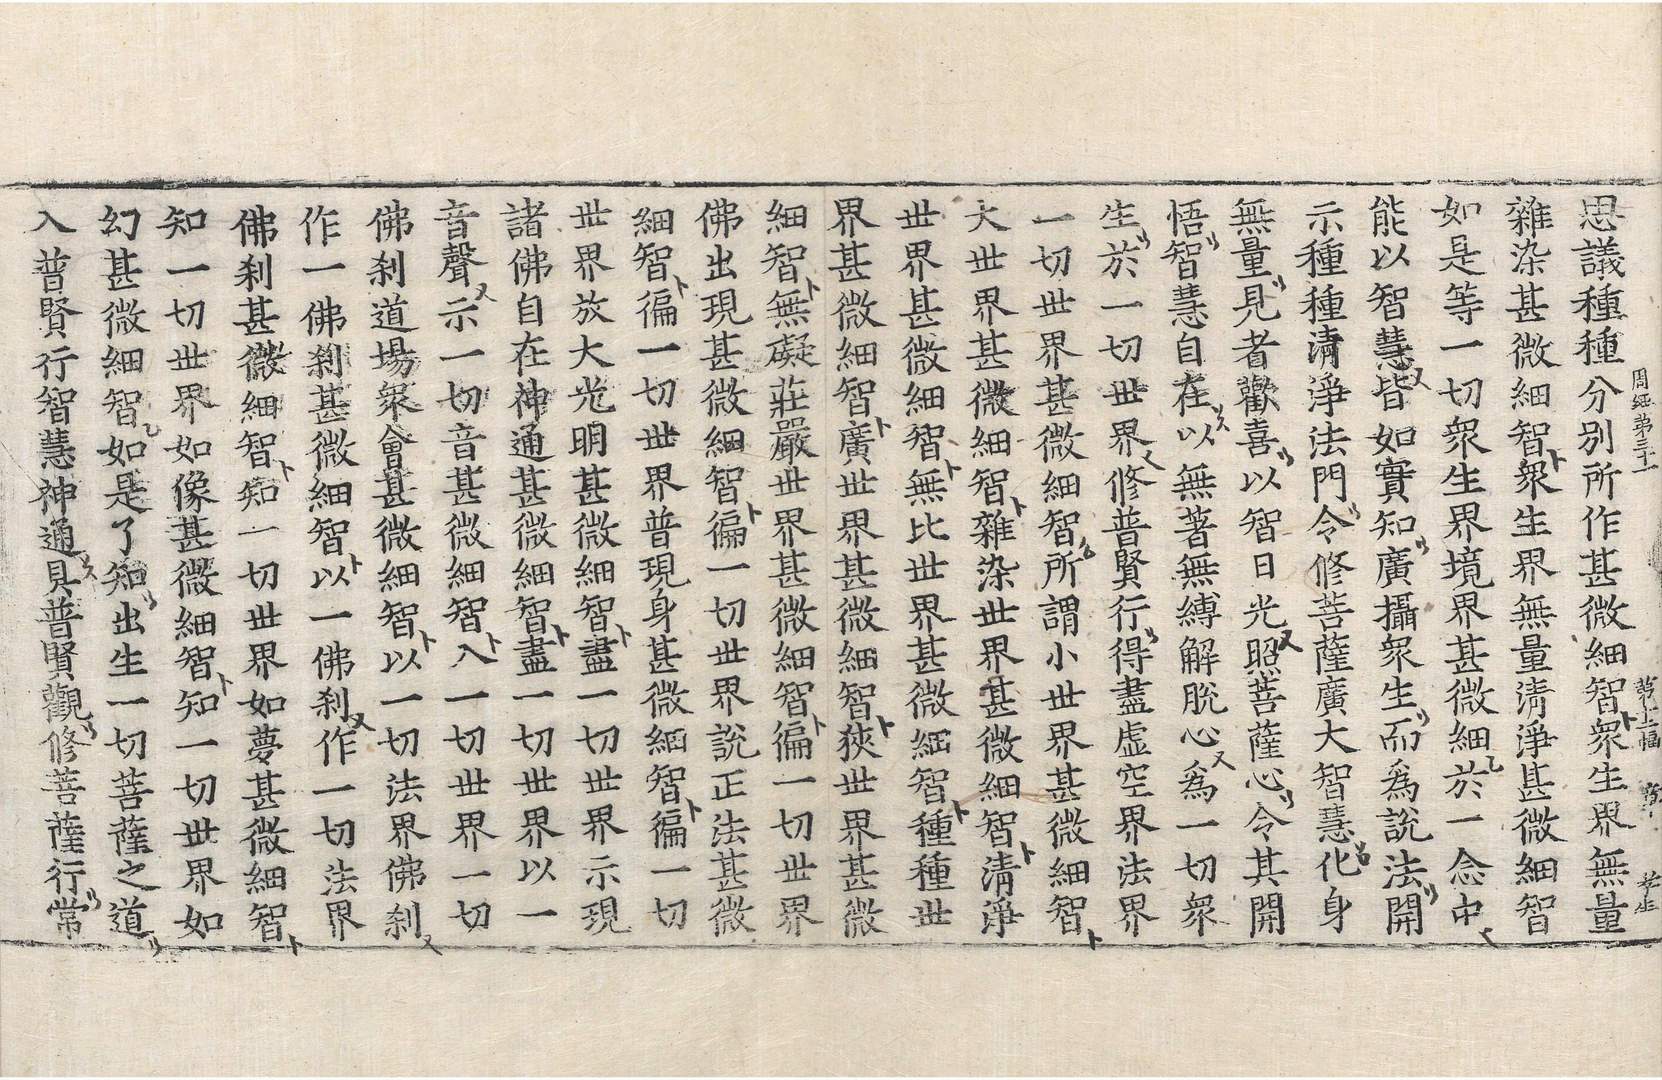 周經第三十一
思議種種分別所作甚微細智衆生界無量
雜染甚微細智衆生界無量淸淨甚微細智
如是等一切衆生界境界甚微細於一念中
能以智慧皆如實知廣攝衆生而爲說法開
示種種淸淨法門令修菩薩廣大智慧化身
無量見者歡喜以智日光照菩薩心令其開
悟智慧自在以無著無縛解脫心爲一切衆
生於一切世界修普賢行得盡虛空界法界
一切世界甚微細智所謂小世界甚微細智
大世界甚微細智雜染世界甚微細智淸淨
世界甚微細智無比世界甚微細智種種世
界甚微細智廣世界甚微細智狹世界甚微
細智無礙莊嚴世界甚微細智徧一切世界
佛出現甚微細智徧一切世界說正法甚微
細智徧一切世界普現身甚微細智徧一切
世界放大光明甚微細智盡一切世界示現
諸佛自在神通甚微細智盡一切世界以一
音聲示一切音甚微細智入一切世界一切
佛刹道場衆會甚微細智以一切法界佛刹
作一佛刹甚微細智以一佛刹作一切法界
佛刹甚微細智知一切世界如夢甚微細智
知一切世界如像甚微細智知一切世界如
幻甚微細智如是了知出生一切菩薩之道
入普賢行智慧神通具普賢觀修菩薩行常